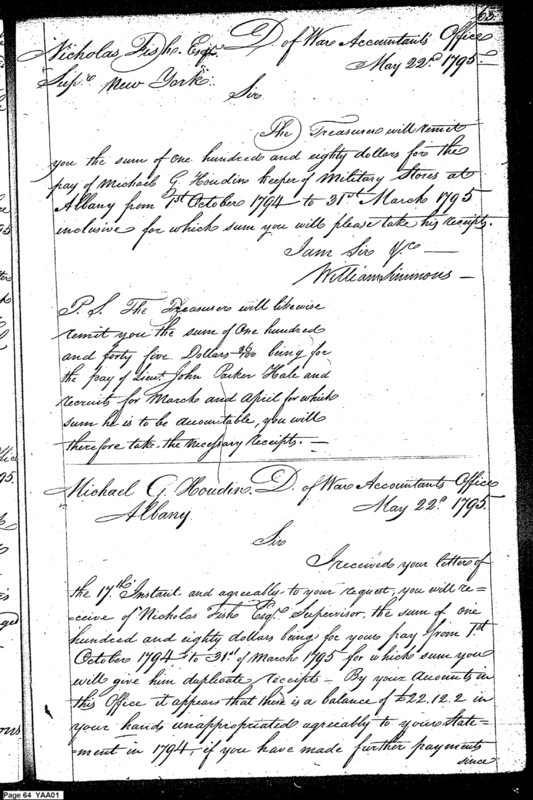 63.
Nicholas Fish Esqr. D. of War Accountants Office
Supr. New York. May 22d. 1795.
Sir
The Treasurer will remit
you the sum of one hundred and eighty dollars for the
pay of Michael G. Houdin keeper of Military Stores at
Albany from 1st October 1794 to 31st March 1795
inclusive for which sum you will please take his receipts.
I am Sir &c —
William Simmons —
P. S. The Treasurer will likewise
remit you the sum of One hundred
and forty five Dollars being for
the pay of Lieut. John Parker Hale and
recruits for March and April for which
sum he is to be accountable, you will
therefore take the necessary receipts. —
Michael G. Houdin D. of War Accountants Office
Albany May 22d. 1795.
Sir
I received your letter of
the 17th Instant and agreeably to your request, you will re=
=ceive of Nicholas Fish Esqr. Supervisor, the sum of one
hundred and eighty dollars being for your pay from 1st
October 1794 to 31st of March 1795 for which sum you
will give him duplicate receipts – By your accounts in
this Office it appears that there is a balance of £22.12.2 in
your hands unappropriated agreeably to your state=
=ment in 1794, if you have made further payments
since
Page 64 YAA01